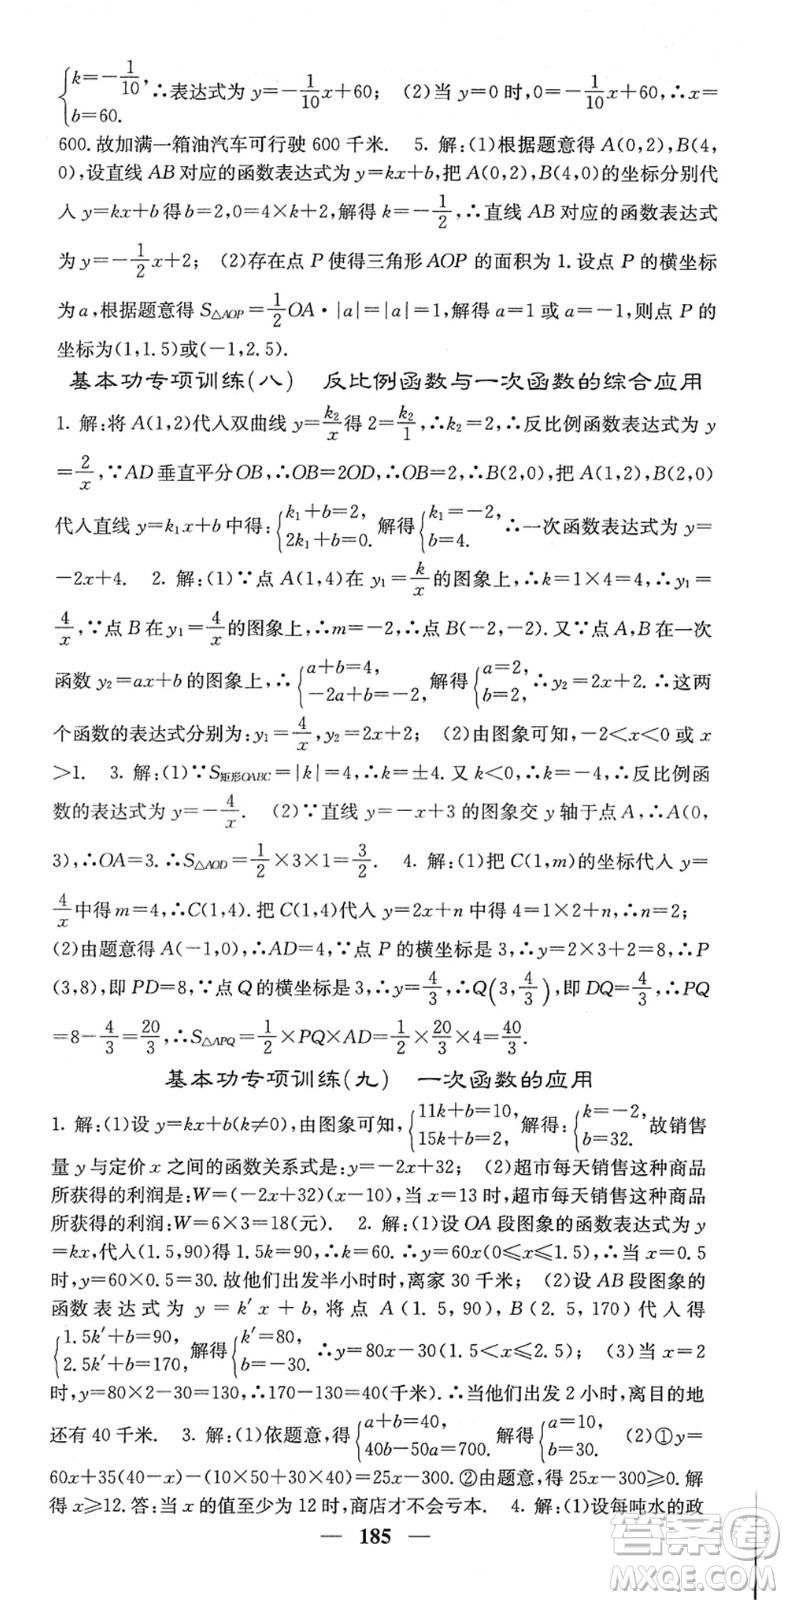 {k=-1/10, b=60. ∴表达式为 y=-1/10x+60; (2)当 y=0 时,0=-1/10x+60,∴x=
600.故加满一箱油汽车可行驶 600 千米. 5. 解:(1)根据题意得 A(0,2),B(4,
0),设直线 AB 对应的函数表达式为 y=kx+b,把 A(0,2),B(4,0)的坐标分别代
入 y=kx+b 得 b=2,0=4×k+2,解得 k=-1/2,∴直线 AB 对应的函数表达式
为 y=-1/2x+2; (2)存在点 P 使得三角形 AOP 的面积为 1.设点 P 的横坐标
为 a,根据题意得 S△AOP=1/2OA·|a|=|a|=1,解得 a=1 或 a=-1,则点 P 的
坐标为(1,1.5)或(-1,2.5).
基本功专项训练(八) 反比例函数与一次函数的综合应用
1. 解:将 A(1,2)代入双曲线 y=k₂/x 得 2=k₂/1,∴k₂=2,∴反比例函数表达式为 y
=2/x,∵AD 垂直平分 OB,∴OB=2OD,∴OB=2,∴B(2,0),把 A(1,2),B(2,0)
代入直线 y=k₁x+b 中得:{k₁+b=2, 2k₁+b=0. 解得{k₁=-2, b=4. ∴一次函数表达式为 y=
-2x+4. 2. 解:(1)∵点 A(1,4)在 y₁=k/x 的图象上,∴k=1×4=4,∴y₁=
4/x,∵点 B 在 y₁=4/x 的图象上,∴m=-2,∴点 B(-2,-2).又∵点 A,B 在一次
函数 y₂=ax+b 的图象上,∴{a+b=4, -2a+b=-2, 解得{a=2, b=2, ∴y₂=2x+2.∴这两
个函数的表达式分别为:y₁=4/x,y₂=2x+2; (2)由图象可知,-2<x<0 或 x
>1. 3. 解:(1)∵S矩形OABC=|k|=4,∴k=±4.又 k<0,∴k=-4,∴反比例函
数的表达式为 y=-4/x. (2)∵直线 y=-x+3 的图象交 y 轴于点 A,∴A(0,
3),∴OA=3.∴S△AOD=1/2×3×1=3/2. 4. 解:(1)把 C(1,m)的坐标代入 y=
4/x 中得 m=4,∴C(1,4).把 C(1,4)代入 y=2x+n 中得 4=1×2+n,∴n=2;
(2)由题意得 A(-1,0),∴AD=4,∵点 P 的横坐标是 3,∴y=2×3+2=8,∴P
(3,8),即 PD=8,∵点 Q 的横坐标是 3,∴y=4/3,∴Q(3,4/3),即 DQ=4/3,∴PQ
=8-4/3=20/3,∴S△APQ=1/2×PQ×AD=1/2×20/3×4=40/3.
基本功专项训练(九) 一次函数的应用
1. 解:(1)设 y=kx+b(k≠0),由图象可知,{11k+b=10, 15k+b=2, 解得:{k=-2, b=32. 故销售
量 y 与定价 x 之间的函数关系式是:y=-2x+32; (2)超市每天销售这种商品
所获得的利润是:W=(-2x+32)(x-10),当 x=13 时,超市每天销售这种商品
所获得的利润:W=6×3=18(元). 2. 解:(1)设 OA 段图象的函数表达式为 y
=kx,代入(1.5,90)得 1.5k=90,∴k=60.∴y=60x(0≤x≤1.5),∴当 x=0.5
时,y=60×0.5=30.故他们出发半小时时,离家 30 千米; (2)设 AB 段图象的
函数表达式为 y=k′x+b,将点 A(1.5,90),B(2.5,170)代入得
{1.5k′+b=90, 2.5k′+b=170, 解得{k′=80, b=-30. ∴y=80x-30(1.5<x≤2.5); (3)当 x=2
时,y=80×2-30=130,∴170-130=40(千米).∴当他们出发 2 小时,离目的地
还有 40 千米. 3. 解:(1)依题意,得{a+b=40, 40b-50a=700. 解得{a=10, b=30. (2)①y=
60x+35(40-x)-(10×30+30×40)=25x-300.②由题意,得 25x-300≥0.解
得 x≥12.答:当 x 的值至少为 12 时,商店才不会亏本. 4. 解:(1)设每吨水的政
— 185 —
答案圈
MXQE.COM